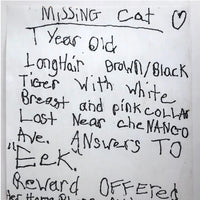 MISSING Cat
1 Year Old
LongHair Brown/Black
Tiger With White
Breast and pink COLLAR
Lost Near cheNANGO
Ave. ANSwers TO
"Eek."
Reward OFFERED